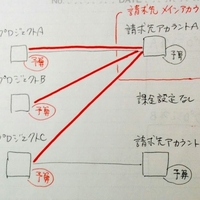 請求先 メインアカウ
プロジェクトA
請求先アカウントA
予算
予算
プロジェクトB
予算
課金設定なし
プロジェクトC
請求先アカウント
予算
予算